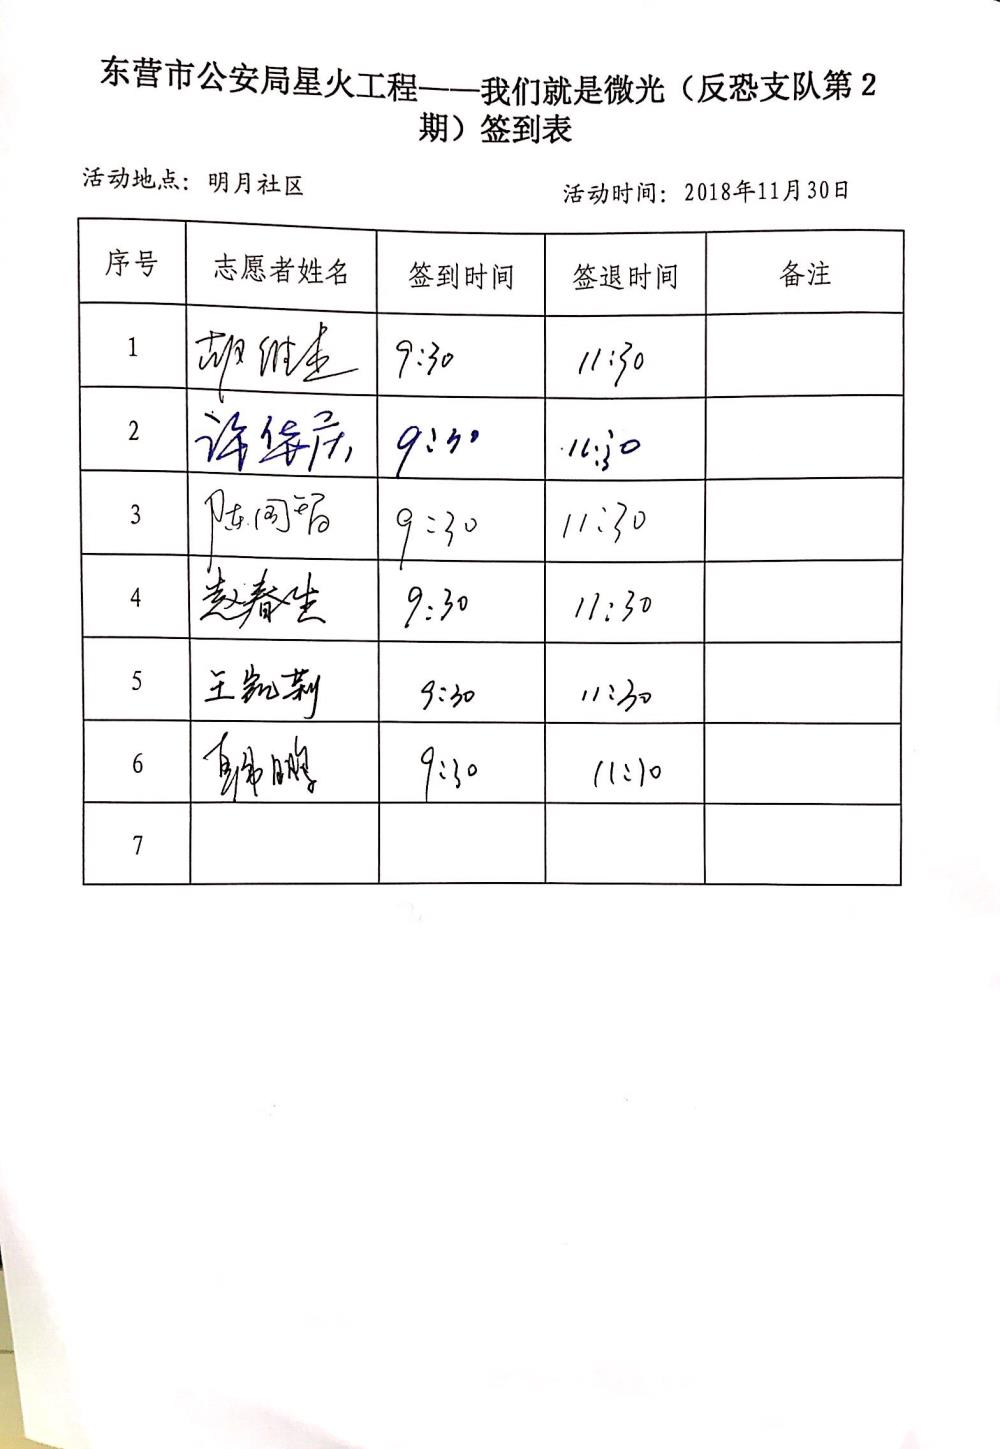 东营市公安局星火工程——我们就是微光（反恐支队第2
期）签到表
活动地点：明月社区 活动时间：2018年11月30日
序号 志愿者姓名 签到时间 签退时间 备注
1 胡维杰 9:30 11:30
2 许华庆 9:30 11:30
3 陈国智 9:30 11:30
4 赵春生 9:30 11:30
5 王凯莉 9:30 11:30
6 鹏 9:30 11:30
7